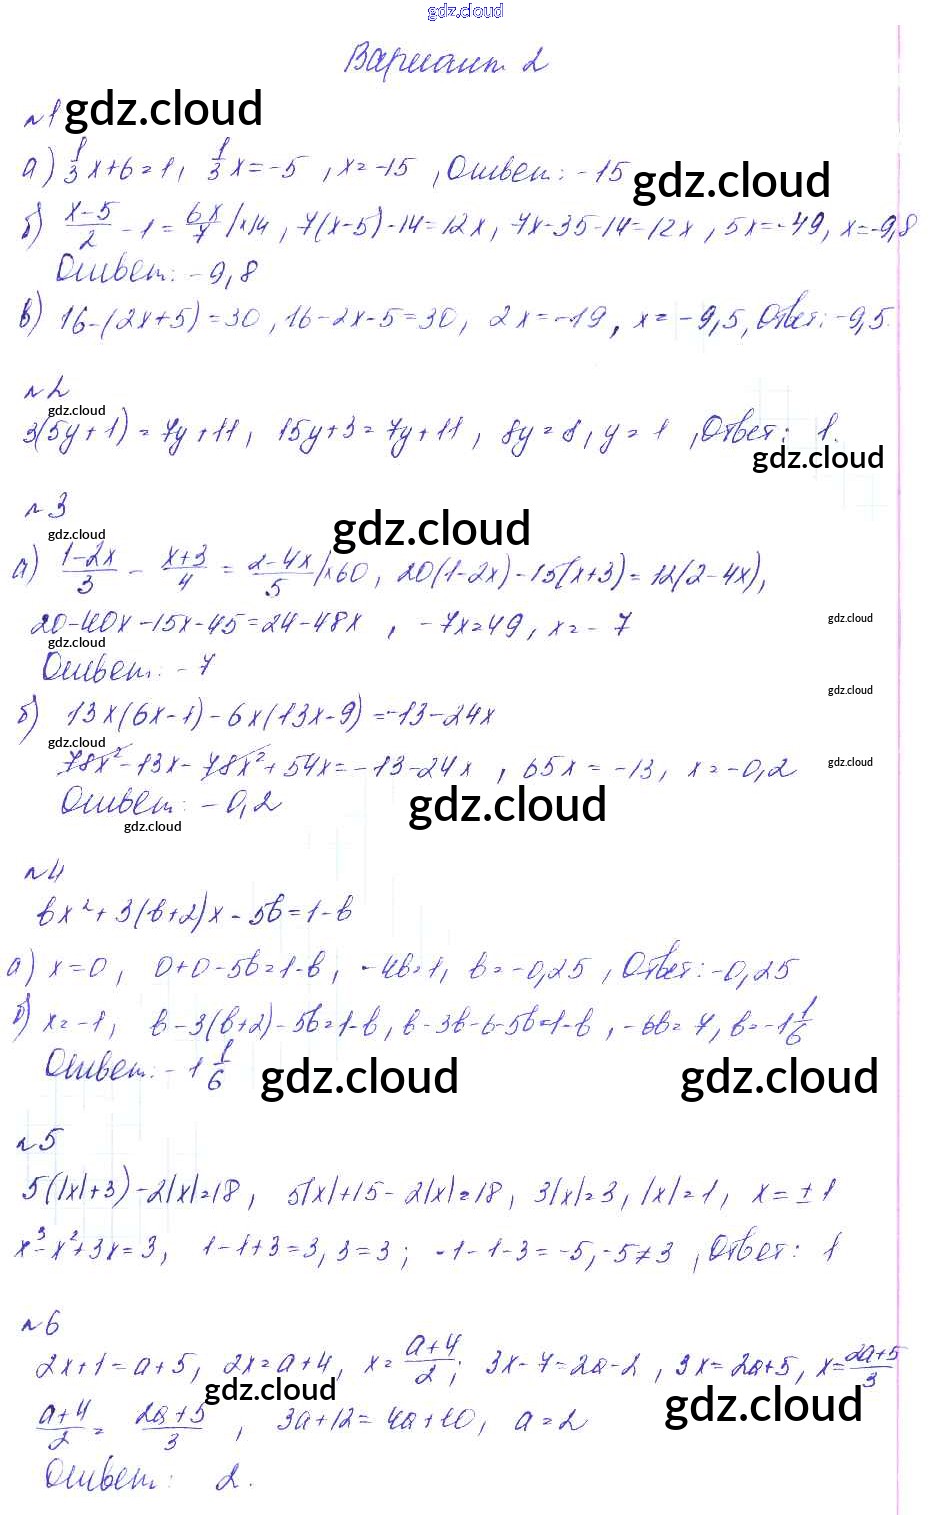 gdz.cloud
Вариант 2
№1 gdz.cloud
а) 1/3 x+6=1, 1/3 x=-5, x=-15, Ответ: -15 gdz.cloud
б) (x-5)/2 - 1 = 6x/7 |×14, 7(x-5)-14=12x, 7x-35-14=12x, 5x=-49, x=-9,8
Ответ: -9,8
в) 16-(2x+5)=30, 16-2x-5=30, 2x=-19, x=-9,5, Ответ: -9,5.
№2
gdz.cloud
3(5y+1)=7y+11, 15y+3=7y+11, 8y=8, y=1, Ответ: 1.
gdz.cloud
№3
gdz.cloud gdz.cloud
а) (1-2x)/3 - (x+3)/4 = (2-4x)/5 |×60, 20(1-2x)-15(x+3)=12(2-4x),
20-40x-15x-45=24-48x, -7x=49, x=-7 gdz.cloud
gdz.cloud
Ответ: -7
gdz.cloud
б) 13x(6x-1)-6x(13x-9)=-13-24x
gdz.cloud
78x²-13x-78x²+54x=-13-24x, 65x=-13, x=-0,2 gdz.cloud
Ответ: -0,2 gdz.cloud
gdz.cloud
№4
bx²+3(b+2)x-5b=1-b
а) x=0, 0+0-5b=1-b, -4b=1, b=-0,25, Ответ: -0,25
б) x=-1, b-3(b+2)-5b=1-b, b-3b-6-5b=1-b, -6b=7, b=-1 1/6
Ответ: -1 1/6 gdz.cloud gdz.cloud
№5
5(|x|+3)-2|x|=18, 5|x|+15-2|x|=18, 3|x|=3, |x|=1, x=±1
x³-x²+3x=3, 1-1+3=3, 3=3; -1-1-3=-5, -5≠3, Ответ: 1
№6
2x+1=a+5, 2x=a+4, x=(a+4)/2; 3x-7=2a-2, 3x=2a+5, x=(2a+5)/3
gdz.cloud gdz.cloud
(a+4)/2 = (2a+5)/3, 3a+12=4a+10, a=2
Ответ: 2.